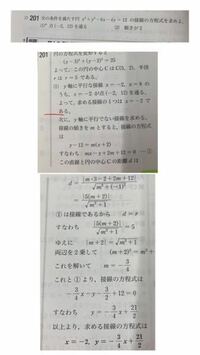 201 次の条件を満たす円 x²+y²-6x-4y=12 の接線の方程式を求めよ。
(1) 点(-2, 12)を通る (2) 傾きが2
201 円の方程式を変形すると
(x-3)²+(y-2)²=25
よって、この円の中心CはC(3, 2)、半径
r は r=5 である。
(1) y軸に平行な接線 x=-2, x=8 の
うち、x=-2 が点(-2, 12)を通る。
よって、求める接線の1つは x=-2 で
ある。
次に、y軸に平行でない接線を求める。
接線の傾きをmとすると、接線の方程式
は
y-12=m(x+2)
すなわち mx-y+2m+12=0 …①
この直線と円の中心Cの距離dは
d=|m・3-2+2m+12|/√(m²+(-1)²)
=|5(m+2)|/√(m²+1)
①は接線であるから d=r
すなわち |5(m+2)|/√(m²+1)=5
ゆえに |m+2|=√(m²+1)
両辺を2乗して (m+2)²=m²+
これを解いて m=-3/4
これと①より、接線の方程式は
-3/4x-y-3/2+12=0
すなわち y=-3/4x+21/2
以上より、求める接線の方程式は
x=-2, y=-3/4x+21/2